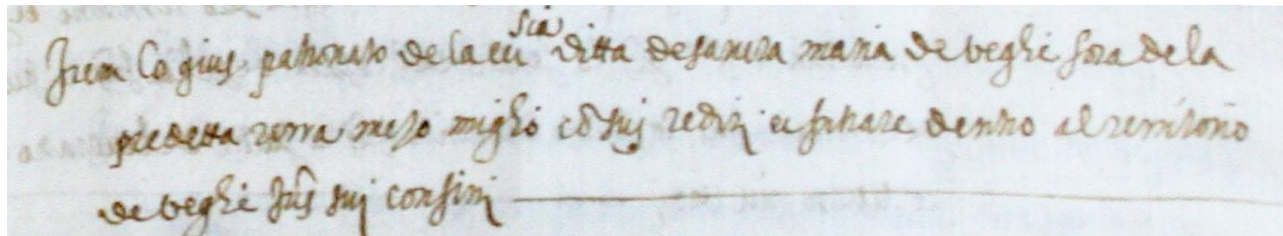 Item lo gius patronato de la ecclesia ditta de santa maria de veghi fora de la
predetta terra mezo miglio cō suj redditj et situate dentro al territorio
de veghe suj confinj